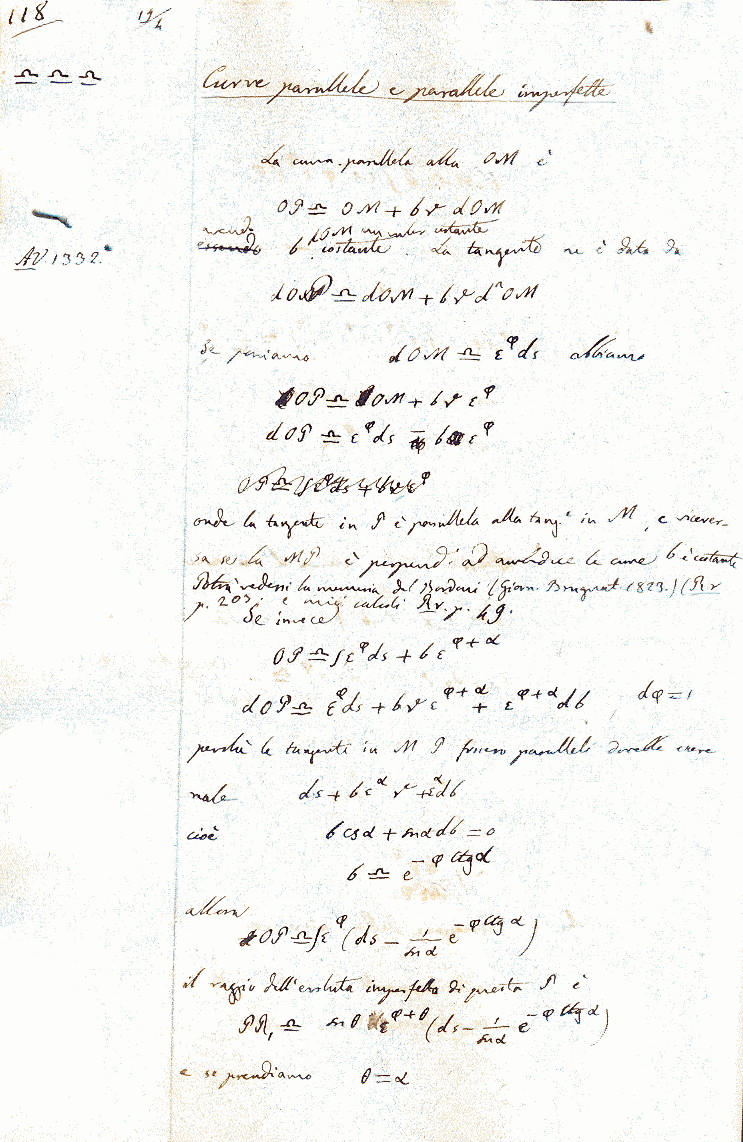 118 19/4
♎ ♎ ♎
Curve parallele e parallele imperfette
La curva parallela alla OM è
OP ♎ OM + b r dOM
avendo dOM un valor costante
essendo b costante. La tangente ne è data da
AV. 1332.
dOP ♎ dOM + b r d²OM
Se poniamo dOM ♎ ε^φ ds abbiamo
OP ♎ OM + b r ε^φ
dOP ♎ ε^φ ds − b ε^φ
OP ♎ ∫ε^φ ds + b r ε^φ
onde la tangente in P è parallela alla tang.e in M, e vicever-
sa se la MP è perpend. ad amendue le curve b è costante
Potrà vedersi la memoria del Bordoni (Giorn. Brugnat. 1823.) (Rr
p. 203; e miei calcoli Rr. p. 49.
Se invece
OP ♎ ∫ε^φ ds + b ε^φ+α
dOP ♎ ε^φ ds + b r ε^φ+α + ε^φ+α db dφ = 1
perchè le tangenti in M P fossero parallele dovrebbe essere
reale ds + b ε^α r + ε^α db
cioè b csα + snα db = 0
b ♎ e^−φ ctgα
allora
OP ♎ ∫ε^φ (ds − 1/snα e^−φ ctgα)
il raggio dell'evoluta imperfetta di questa P è
PR₁ ♎ snθ ε^φ+θ (ds − 1/snα e^−φ ctgα)
e se prendiamo θ = α